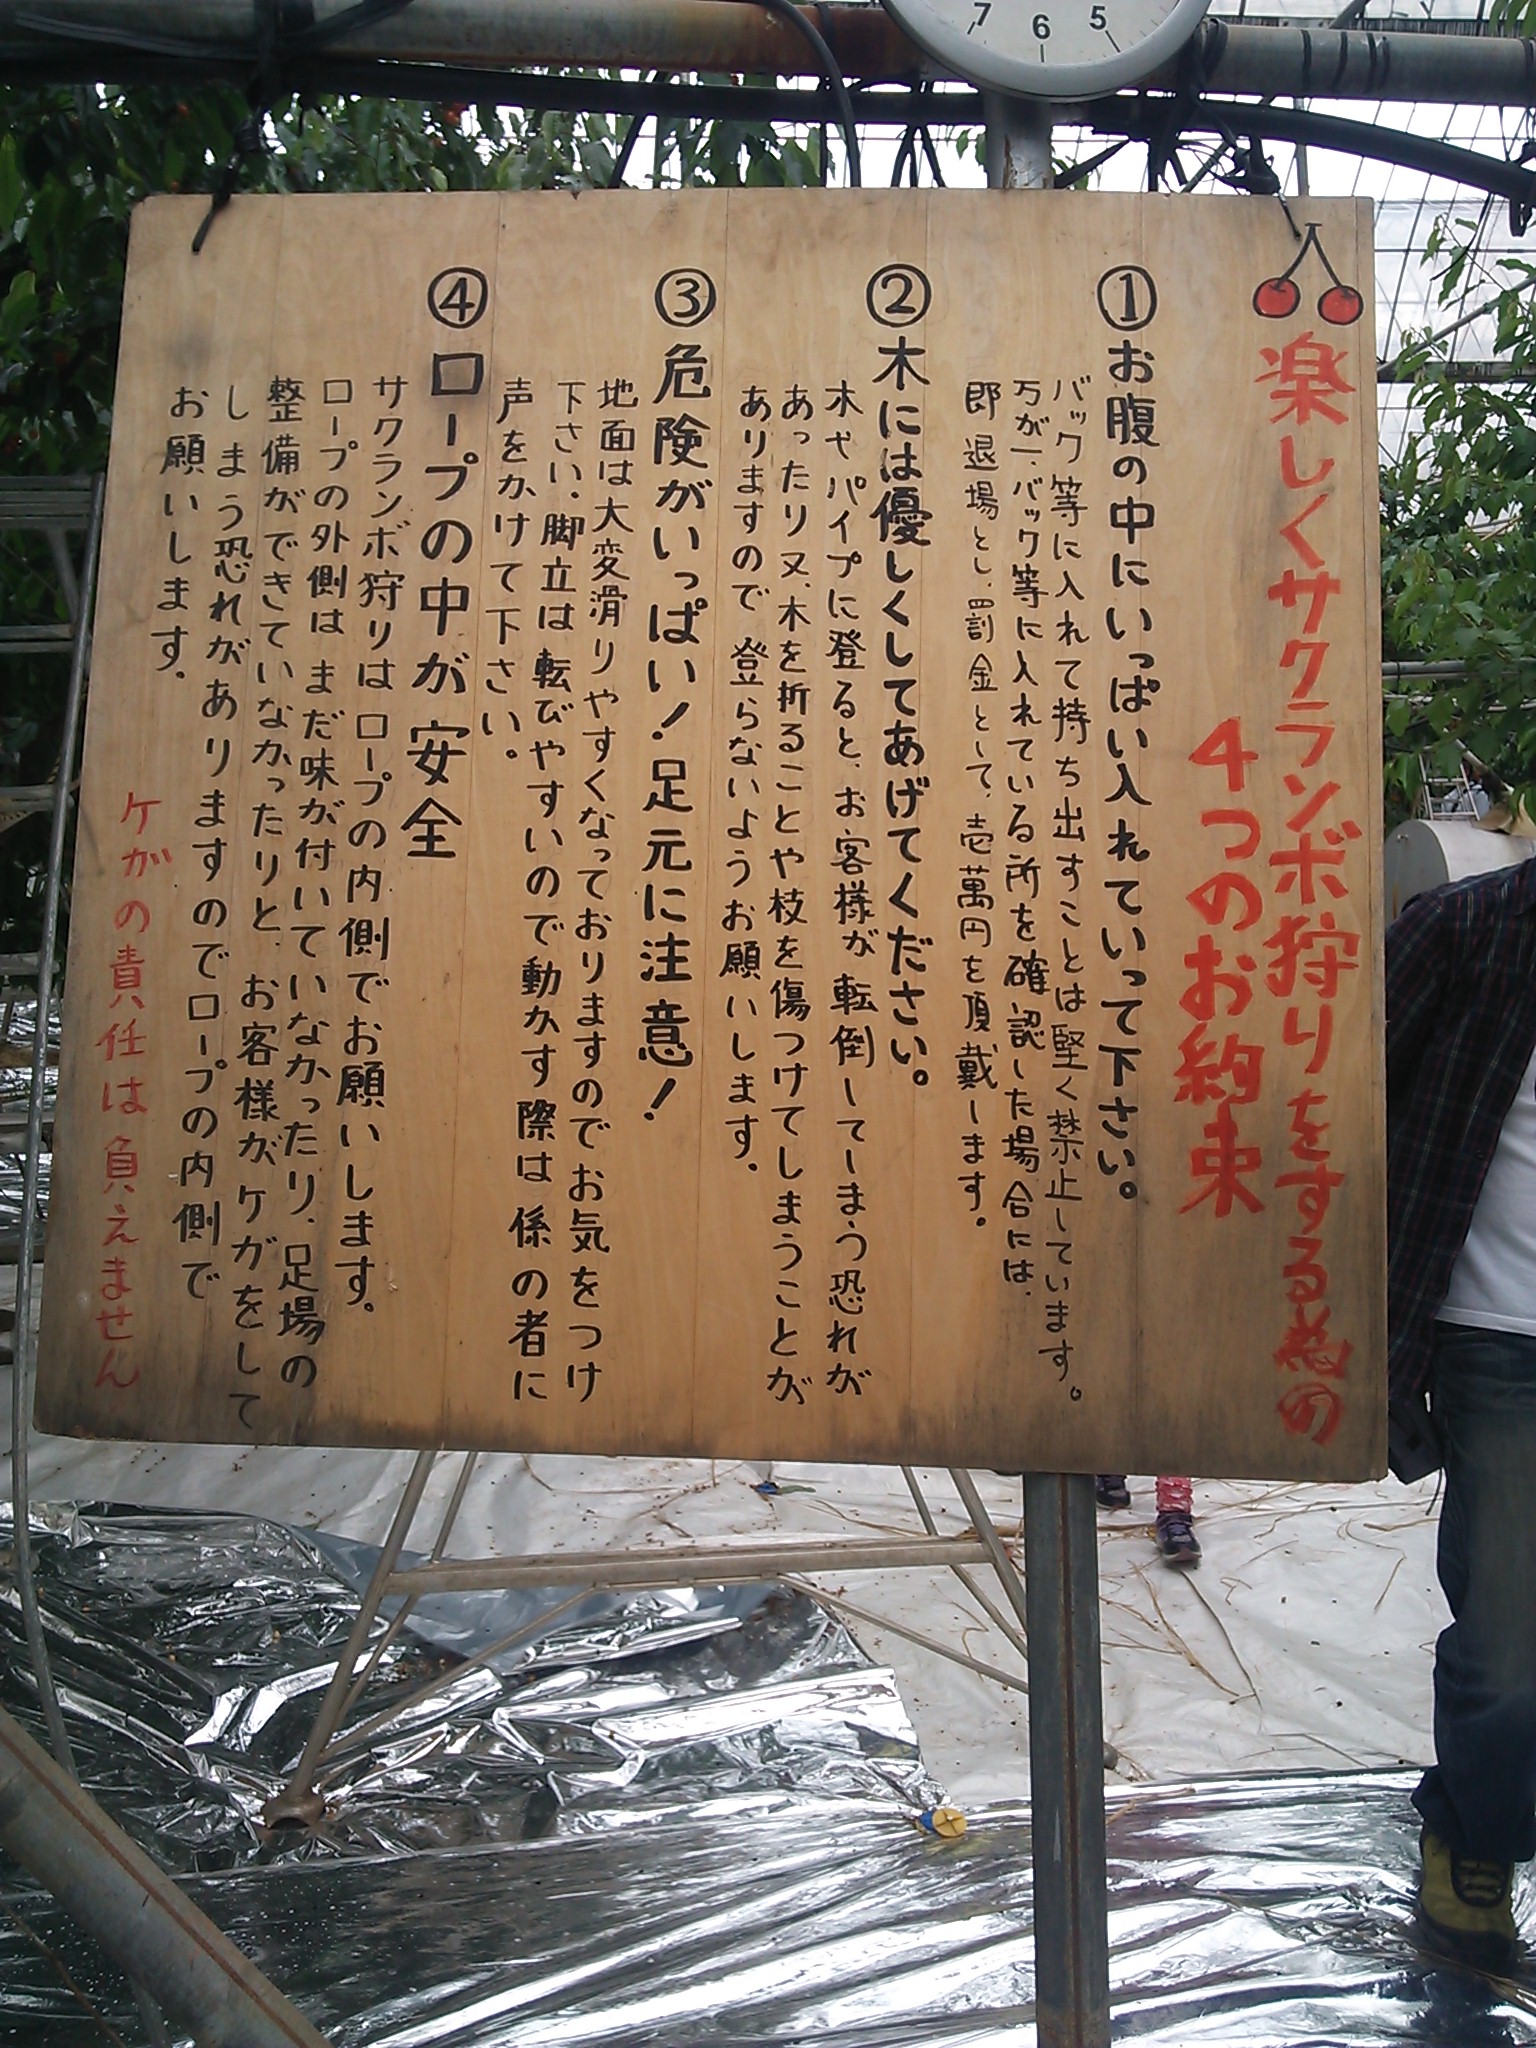 楽しくサクランボ狩りをする為の
4つのお約束
①お腹の中にいっぱい入れていって下さい。
バック等に入れて持ち出すことは堅く禁止しています。
万が一、バック等に入れている所を確認した場合には、
即退場とし、罰金として、壱萬円を頂戴します。
②木には優しくしてあげてください。
木やパイプに登ると、お客様が転倒してしまう恐れが
あったり又、木を折ることや枝を傷つけてしまうことが
ありますので登らないようお願いします。
③危険がいっぱい!足元に注意!
地面は大変滑りやすくなっておりますのでお気をつけ
下さい.脚立は転びやすいので動かす際は係の者に
声をかけて下さい。
④ロープの中が安全
サクランボ狩りはロープの内側でお願いします。
ロープの外側はまだ味が付いていなかったり、足場の
整備ができていなかったりと、お客様がケガをして
しまう恐れがありますのでロープの内側で
お願いします.
ケガの責任は負えません
7 6 5